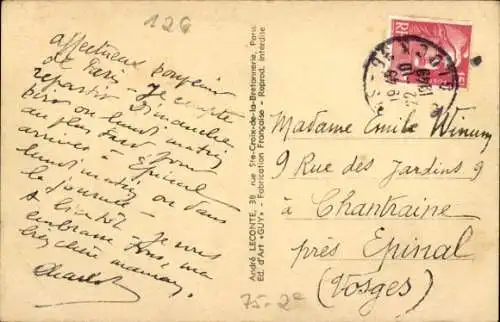 126
affectueux souvenir
de Paris - Je compte
repartir Dimanche
soir ou lundi matin
au plus tard pour
arriver à Epinal
lundi matin ou dans
la journée -
A bientôt - Je vous
embrasse tous, ma
bien chère maman,
Charlot
André LECONTE, 38 rue Ste-Croix-de-la-Bretonnerie, Paris
Ed. d'Art «GUY» - Fabrication Française - Reprod. Interdite
75-2e
Madame Emile Winum
9 Rue des Jardins 9
à Chantraine
près Epinal
(Vosges)